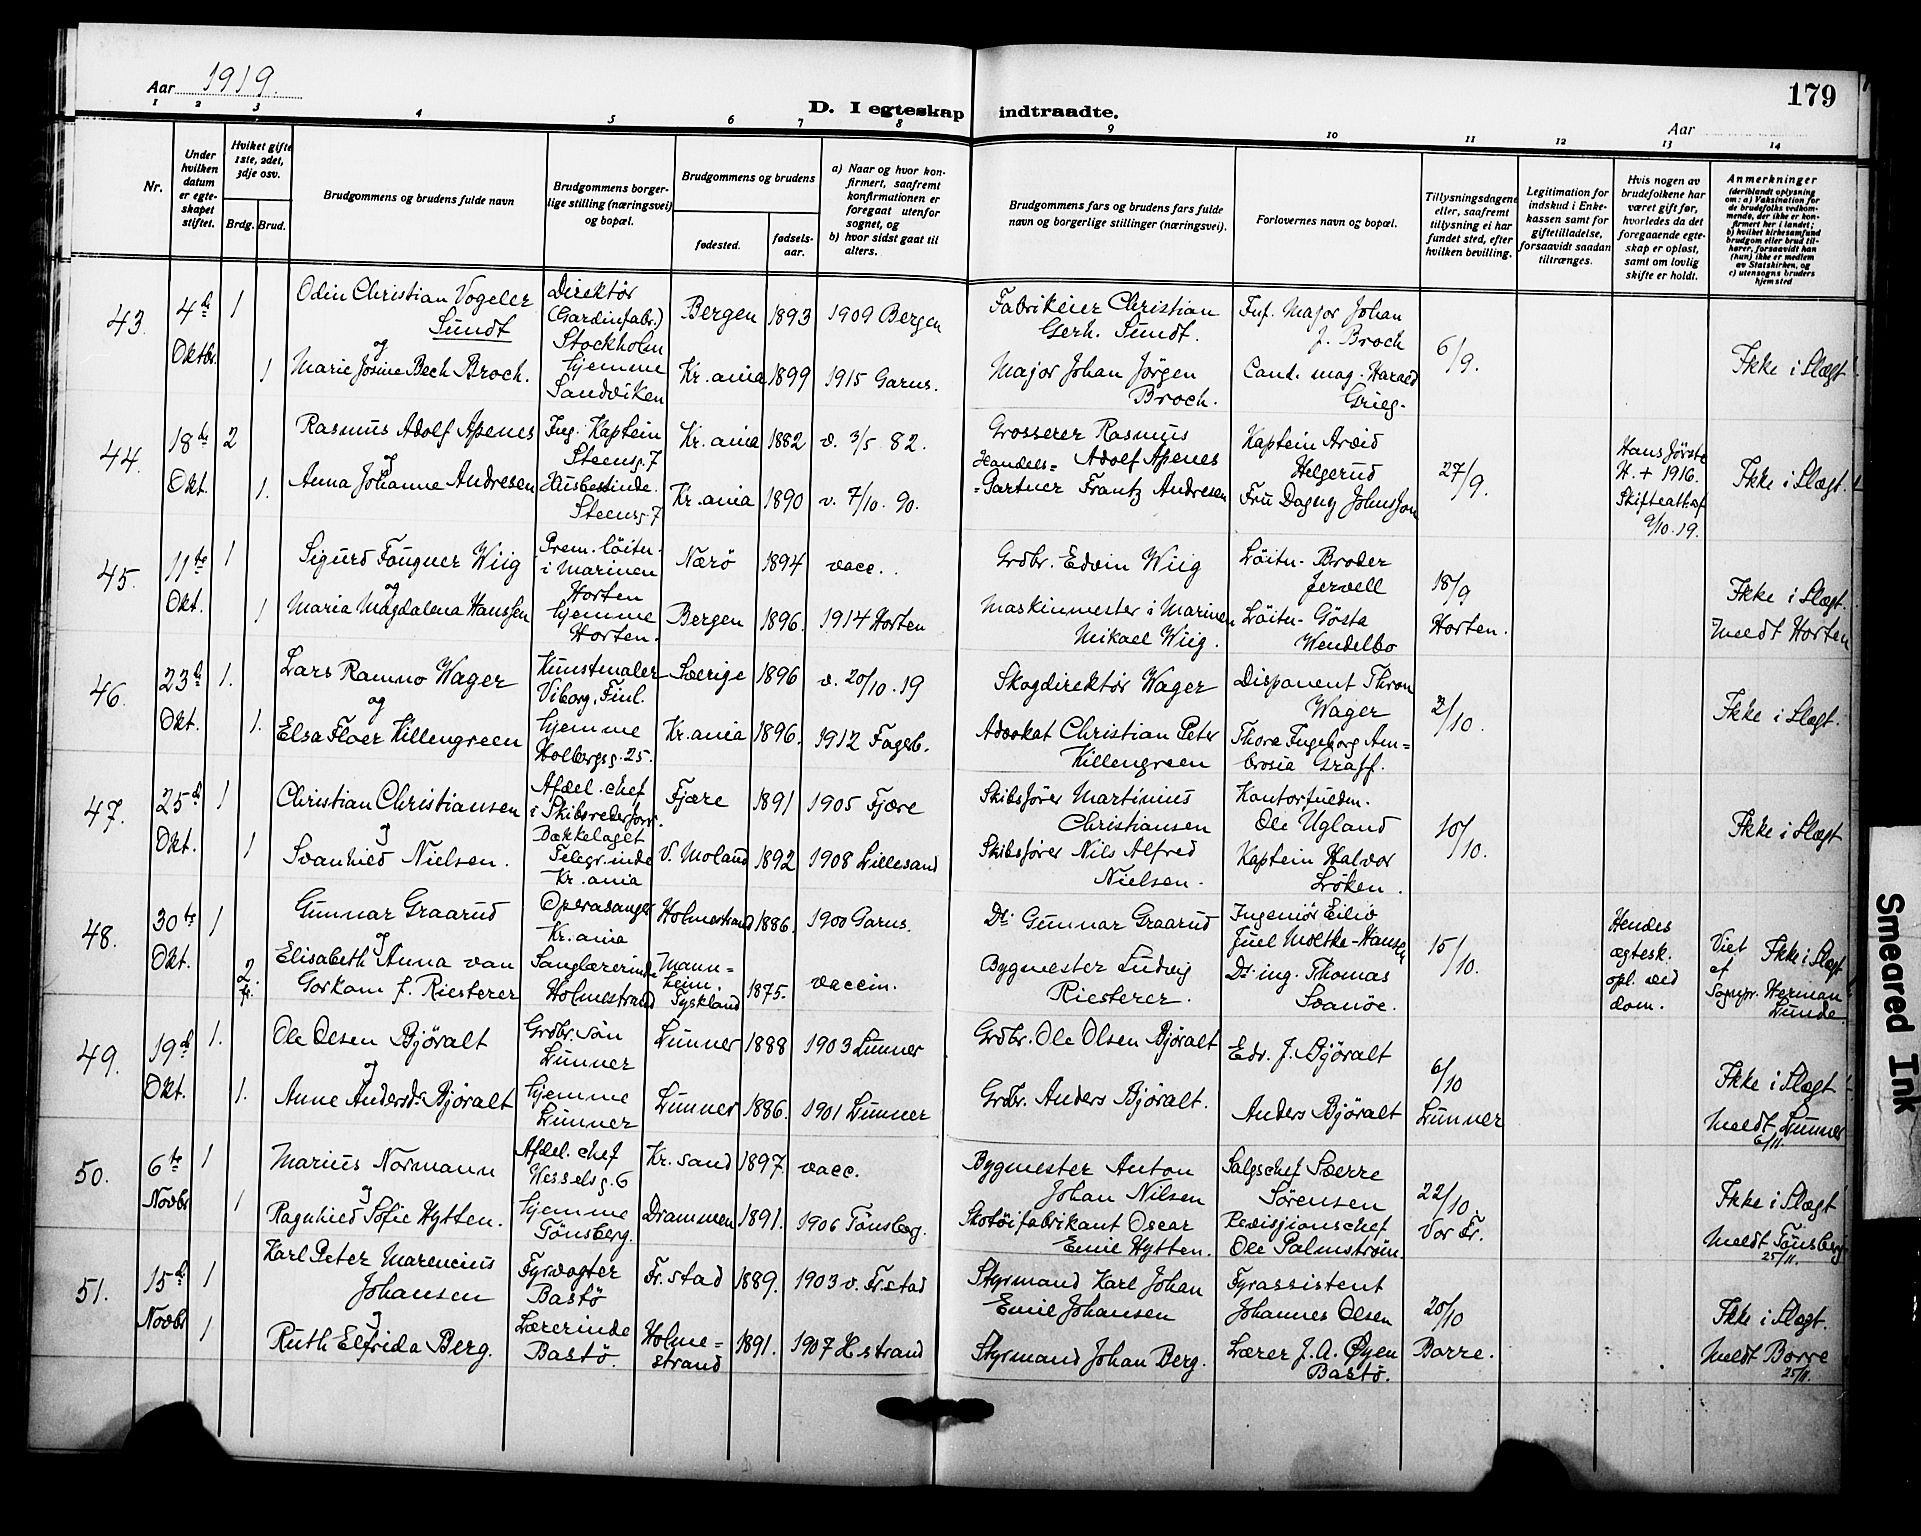 Aar 1919.
D. I egteskap indtraadte.
179
Aar
1 2 3 4 5 6 7 8 9 10 11 12 13 14
Nr.
Under hvilken datum er egteskapet stiftet.
Hvilket gifte 1ste, 2det, 3dje osv.
Brdg. Brud.
Brudgommens og brudens fulde navn
Brudgommens borgerlige stilling (næringsvei) og bopæl.
Brudgommens og brudens
fødested.
fødselsaar.
a) Naar og hvor konfirmert, saafremt konfirmationen er foregaat utenfor sognet, og
b) hvor sidst gaat til alters.
Brudgommens fars og brudens fars fulde navn og borgerlige stillinger (næringsvei).
Forlovernes navn og bopæl.
Tillysningsdagene eller, saafremt tillysning ei har fundet sted, efter hvilken bevilling.
Legitimation for indskud i Enkekassen samt for giftetilladelse, forsaavidt saadan tiltrænges.
Hvis nogen av brudefolkene har været gift før, hvorledes da det foregaaende egteskap er opløst, samt om lovlig skifte er holdt.
Anmerkninger
(deriblandt oplysning om: a) Vaksination for de brudefolks vedkommende, der ikke er konfirmert her i landet; b) hvilket kirkesamfund brudgom eller brud tilhører, forsaavidt han (hun) ikke er medlem av Statskirken, og c) utensogns bruders hjemsted
43. 4de Oktbr. 1
Odin Christian Vogeler Sundt
Direktör (Gardinfabr.) Stockholm
Bergen 1893 1909 Bergen
Fabrikeier Christian Gerh. Sundt.
Inf. Major Johan J. Broch
6/9.
Ikke i Slægt.
og
1 Marie Josine Bech Broch.
hjemme Sandviken
Kr.ania 1899 1915 Garns.
Major Johan Jörgen Broch.
Cand. mag. Harald Grieg.
44. 18de Okt. 2
Rasmus Adolf Apenes
Ing. Kaptein Steensg. 7
Kr.ania 1882 v. 3/5 82.
Grosserer Rasmus Adolf Apenes
Kaptein Arvid Helgerud
27/9.
Hans Jørste H. + 1916. Skifteatt. af 9/10.19.
Ikke i Slægt.
og
1. Anna Johanne Andresen
Husbestinde. Steensg 7
Kr.ania 1890 v. 7/10. 90.
Handels=Gartner Frantz Andresen
Fru Dagny Johnsson
45. 11te Okt. 1
Sigurd Fougner Wiig
Prem. löitn. i Marinen Horten
Nærö 1894 vacc.
Grdbr. Edvin Wiig
Löitn. Broder Jervell
18/9 Horten.
Ikke i Slægt. Meldt Horten
og
1 Maria Magdalena Hanssen
hjemme Horten.
Bergen 1896. 1914 Horten
Maskinmester i Marinen Mikael Wiig.
Löitn. Gösta Wendelbo
46. 23de Okt. 1.
Lars Ramno Wager
Kunstmaler Viborg, Finl.
Sverige 1896 v. 20/10.19
Skogdirektör Wager
Disponent Thron Wager
2/10.
Ikke i Slægt.
og
1. Elsa Floer Killengreen
hjemme Holbergsg. 25.
Kr.ania 1896. 1912 Fagerb.
Advokat Christian Peter Killengreen
Thora Ingeborg Ambrosia Graff.
47. 25de Okt. 1
Christian Christiansen
Afdel.chef i Skibsrederforr. Bækkelaget
Fjære 1891 1905 Fjære
Skibsförer Martinius Christiansen
Kontorfuldm. Ole Ugland
10/10.
Ikke i Slægt
og
1 Svanhild Nielsen.
Telegr.inde Kr.ania
V. Moland 1892 1908 Lillesand
Skibsförer Nils Alfred Nielsen.
Kaptein Halvor Löken.
48. 30te Okt. 1
Gunnar Graarud
Operasanger Kr.ania
Holmestrand 1886. 1900 Garns.
Dr. Gunnar Graarud
Ingeniör Eiliv Juel Moltke-Hansen
15/10.
Hendes ægtesk. opl. ved dom.
Viet af Sognepr. Herman Lunde. Ikke i Slægt
og
2. Elisabeth Anna van Gorkom f. Riesterer
Sanglærerinde Holmestrand
Mannheim. Tyskland 1875. vaccin.
Bygmester Ludvig Riesterer.
Dr. ing. Thomas Svanöe.
49. 19de Okt. 1.
Ole Olsen Björalt
Grdbr. sön Lunner
Lunner 1888 1903 Lunner
Grdbr. Ole Olsen Björalt
Edv. J. Björalt
6/10 Lunner
Ikke i Slægt Meldt Lunner 6/11.
og
1. Anne Andersdr Björalt
hjemme Lunner
Lunner 1886. 1901 Lunner
Grdbr. Anders Björalt.
Anders Björalt
50. 6te Novbr 1
Marius Normann
Afdel.chef Wesselsg. 6
Kr.sand 1897. vacc.
Bygmester Anton Johan Nilsen
Salgschef Sverre Sörensen
22/10. Vor Fr.
Ikke i Slægt Meldt Tönsberg 25/11.
og
1 Ragnhild Sofie Hytten.
hjemme Tönsberg.
Drammen 1891. 1906 Tönsberg.
Skotöifabrikant Oscar Emil Hytten.
Revisjionschef Ole Palmström.
51. 15de Novbr 1
Karl Peter Marencius Johansen
Fyrvogter Bastö
Fr.stad 1889. 1903 v. Fr.stad
Styrmand Karl Johan Emil Johansen
Fyrassistent Johannes Olsen
20/10 Borre.
Ikke i Slægt. Meldt Borre 25/11.
og
1 Ruth Elfrida Berg.
Lærerinde Bastö.
Holmestrand 1891. 1907 H.strand
Styrmand Johan Berg.
Lærer J. A. Øyen Bastö.
Smeared Ink